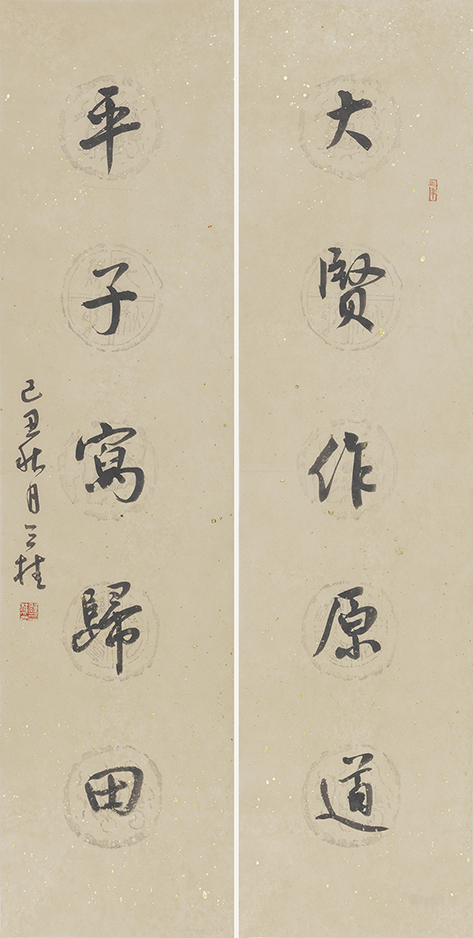 大賢作原道
平子寫歸田
己丑秋月三桂